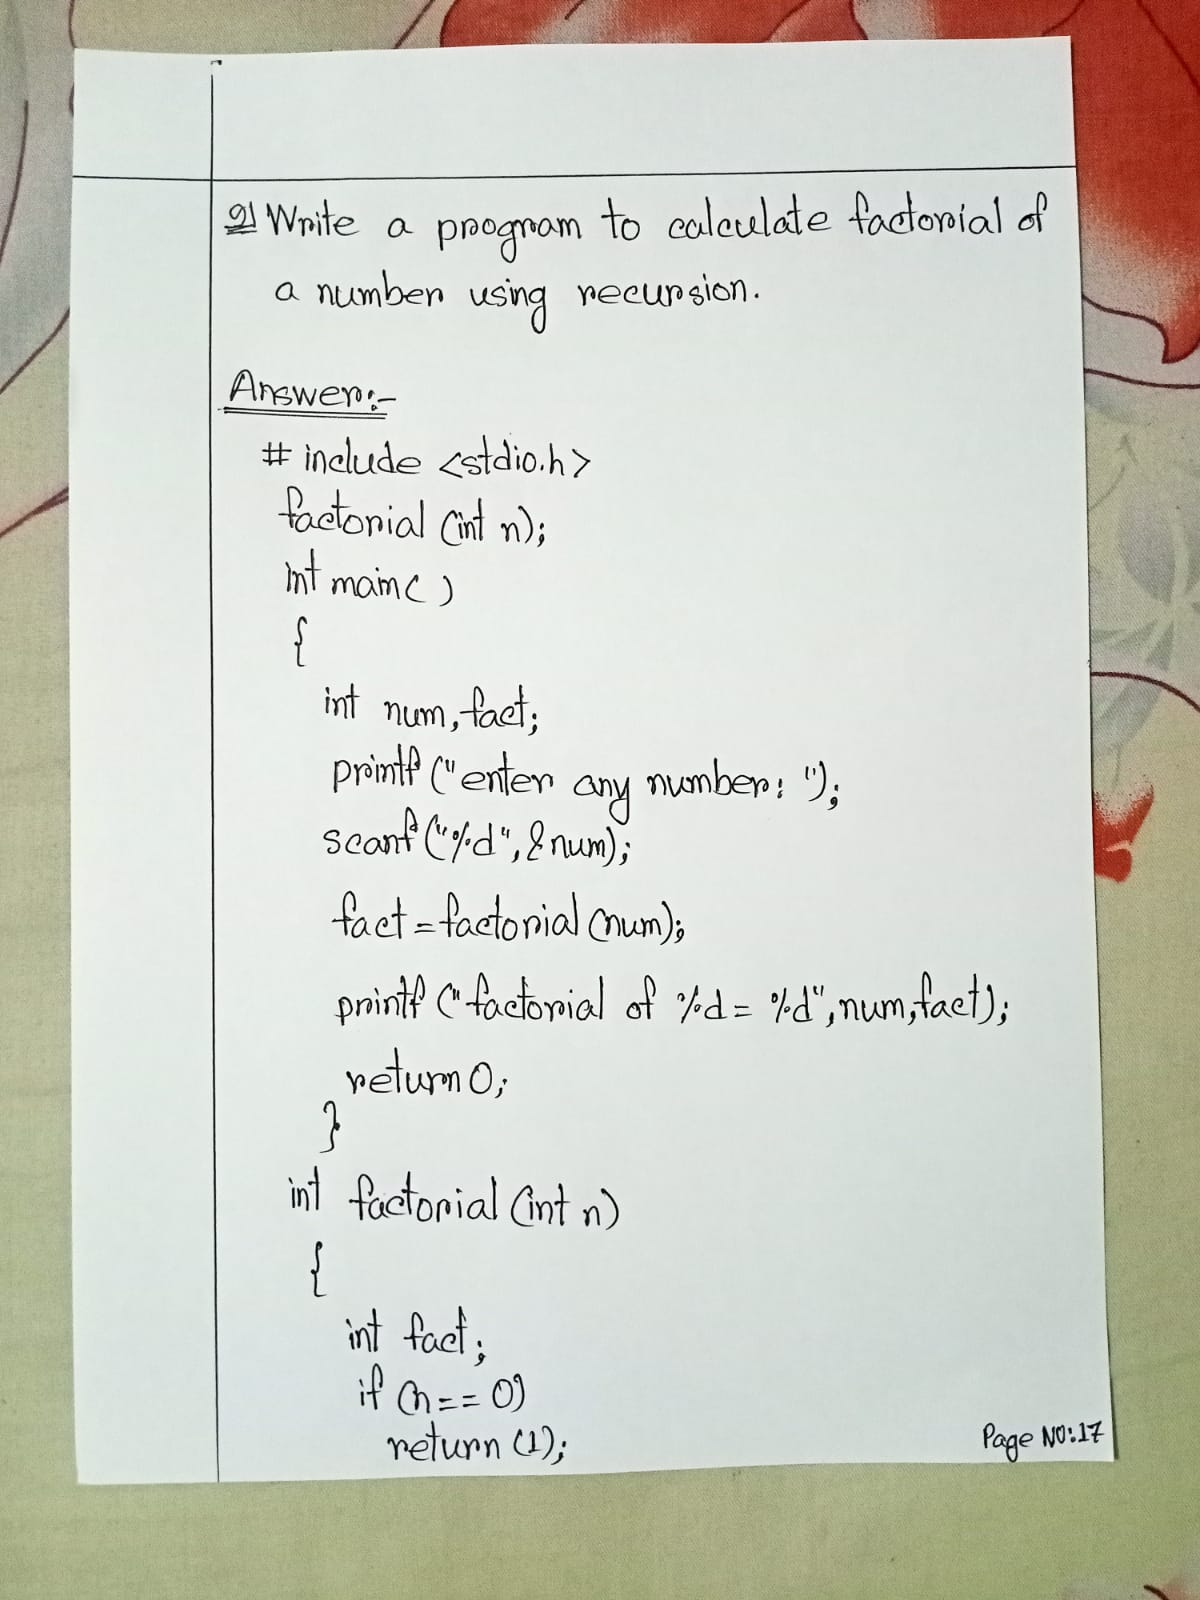 9) Write a program to calculate factorial of
a number using recursion.
Answer:-
# include <stdio.h>
factorial (int n);
int main( )
{
int num, fact;
printf ("enter any number: ");
scanf ("%d", &num);
fact = factorial (num);
printf (" factorial of %d = %d", num, fact);
return 0;
}
int factorial (int n)
{
int fact;
if (n == 0)
return (1);
Page NO:17